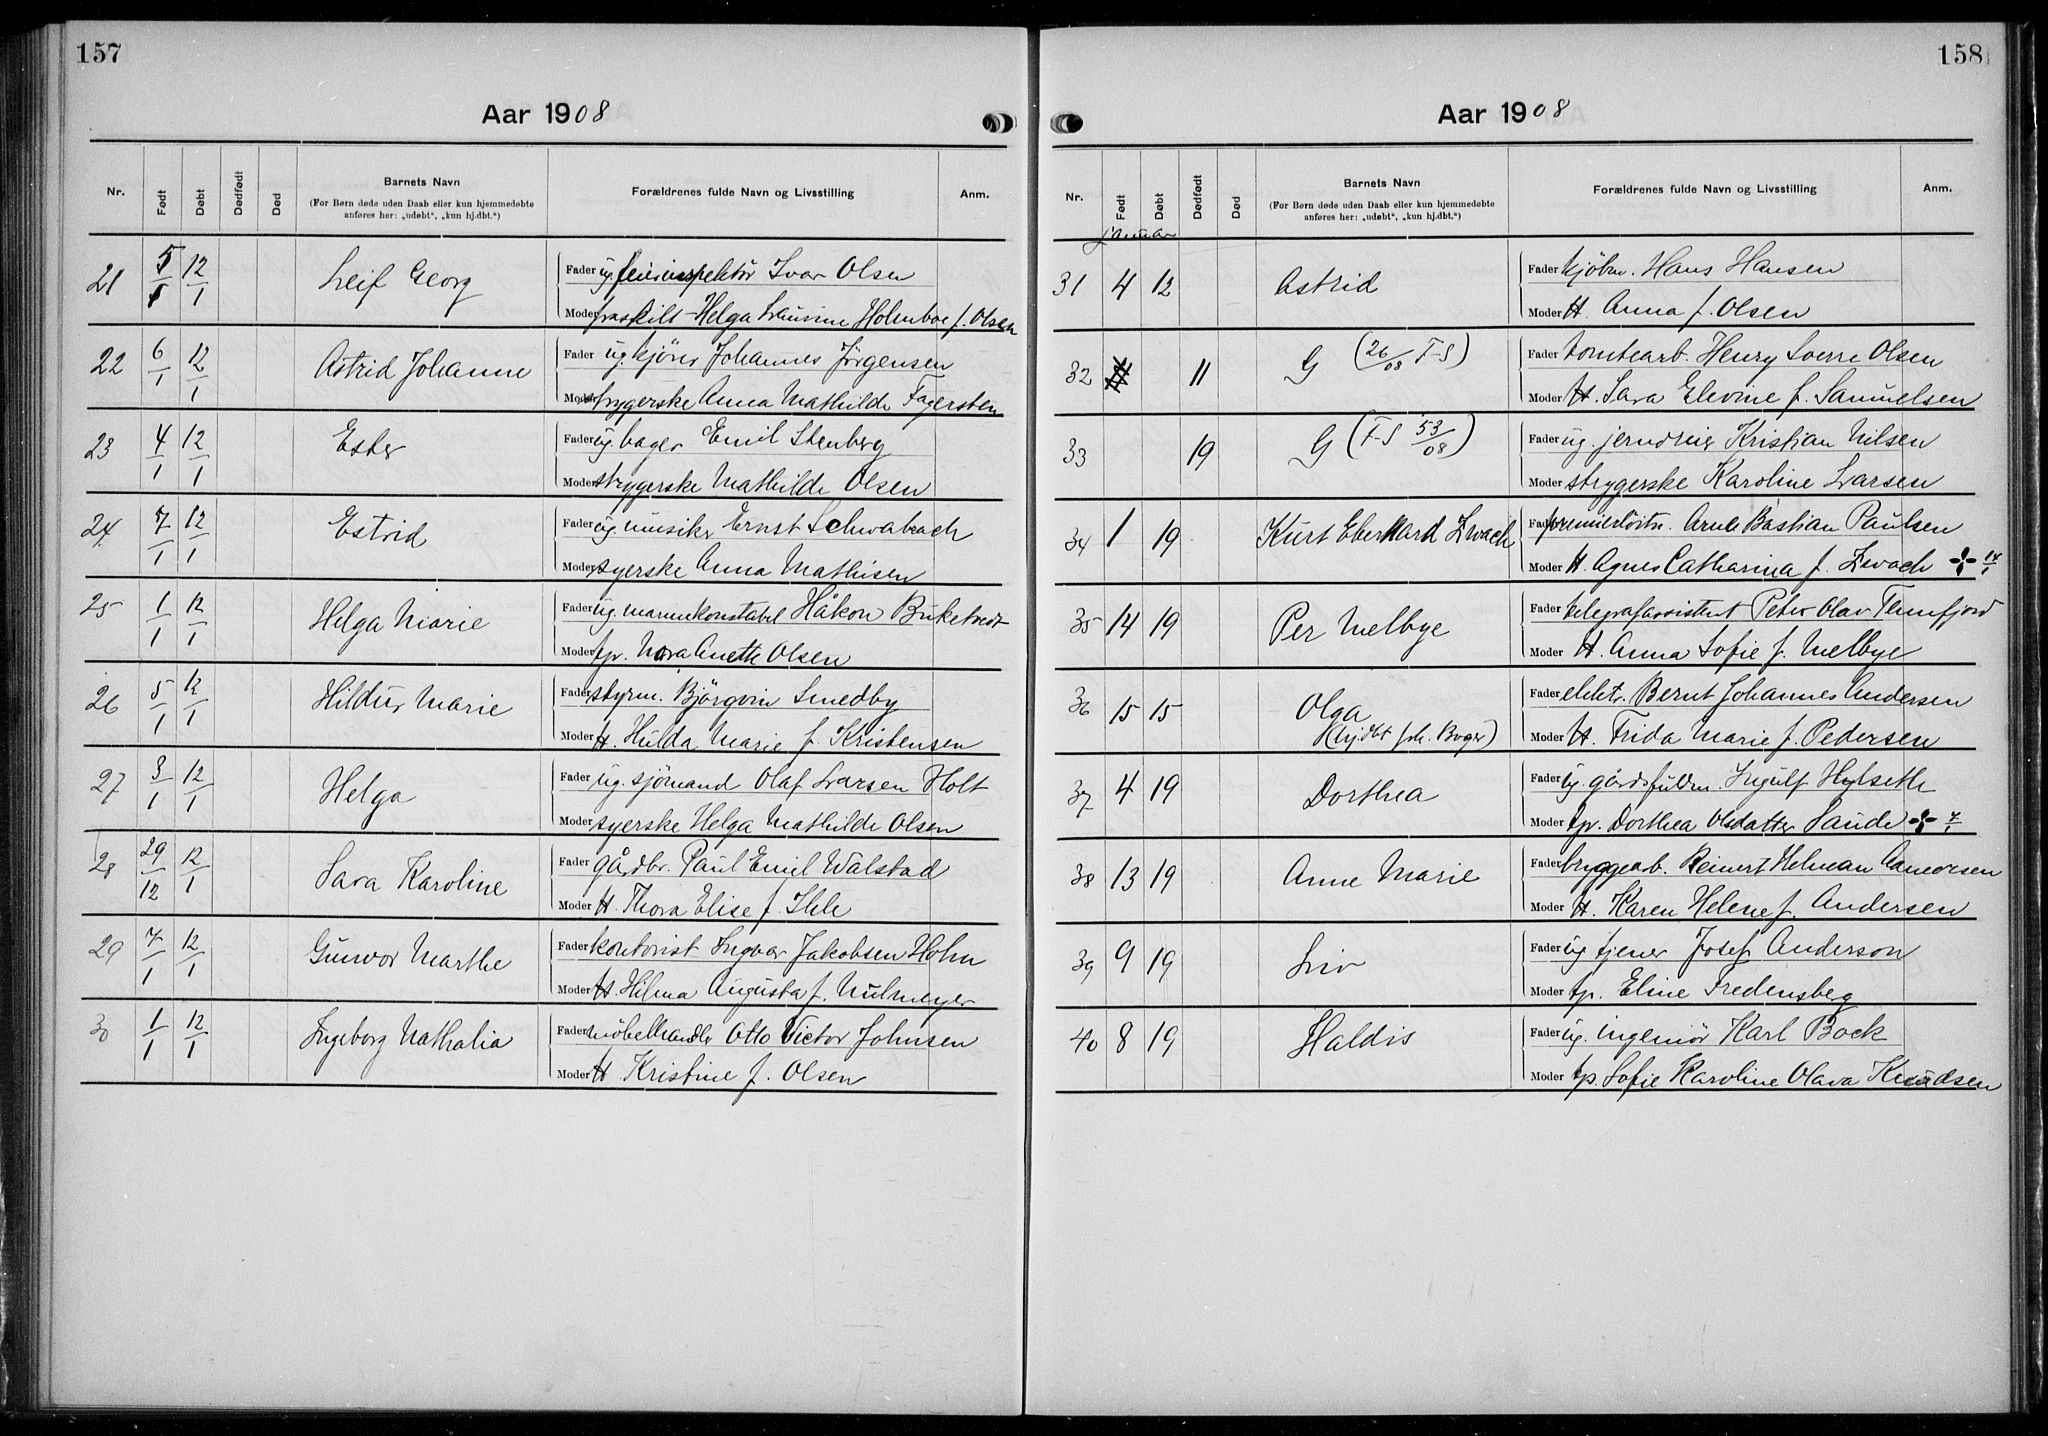 157
Aar 1908
Nr. Født Døbt Dødfødt Død Barnets Navn Forældrenes fulde Navn og Livsstilling Anm.
(For Børn døde uden Daab eller kun hjemmedøbte
anføres her: „udøbt“, „kun hj.dbt.“)
21 5/1 12/1 Leif Georg Fader ug. Ivar Olsen
Moder fraskilt Helga Laurine Holmboe f. Olsen
22 6/1 12/1 Astrid Johanne Fader ug. kjörer Johannes Jörgensen
Moder strygerske Anna Mathilde Fagersten
23 4/1 12/1 Ester Fader ug. bager Emil Stenberg
Moder strygerske Mathilde Olsen
24 7/1 12/1 Estrid Fader ug. musiker Ernst Schwabach
Moder syerske Anna Mathisen
25 1/1 12/1 Helga Marie Fader ug. marinekonstabel Håkon
Moder tp. Nora Anette Olsen
26 5/1 12/1 Hildur Marie Fader styrm. Björgvin Smedby
Moder H. Hulda Marie f. Kristensen
27 3/1 12/1 Helga Fader ug. sjömand Olaf Larsen Holt
Moder syerske Helga Mathilde Olsen
28 29/12 12/1 Sara Karoline Fader gårdbr. Paul Emil Walstad
Moder H. Thora Elise f. Ihle
29 7/1 12/1 Gunvor Marthe Fader kontorist Ingvar Jakobsen Holm
Moder H. Hilma Augusta f. Mulmeyer
30 1/1 12/1 Ingeborg Nathalia Fader möbelhandler Otto Victor Johnsen
Moder H Kristine f. Olsen
158
Aar 1908
Nr. Født Døbt Dødfødt Død Barnets Navn Forældrenes fulde Navn og Livsstilling Anm.
(For Børn døde uden Daab eller kun hjemmedøbte
anføres her: „udøbt“, „kun hj.dbt.“)
Januar
31 4 12 Astrid Fader kjöbm. Hans Hansen
Moder H. Anna f. Olsen
32 11 G (26/08 F-S) Fader tomtearb. Henry Sverre Olsen
Moder H. Sara Elevine f. Samuelsen
33 19 G (F-S 53/08) Fader ug. jerndreier Kristian Nilsen
Moder strygerske Karoline Larsen
34 1 19 Kurt Eberhard Zwach Fader premierlöitn. Arne Bastian Paulsen
Moder H. Agnes Catharina f. Zwach ✣ 14/1
35 14 19 Per Melbye Fader telegrafassistent Peter Olav Tennfjord
Moder H. Anna Sofie f. Melbye
36 15 15 Olga Fader elektr. Bernt Johannes Andersen
(hjdbt Joh. Boger) Moder H. Frida Marie f. Pedersen
37 4 19 Dorthea Fader ug. gårdsfuldm. Ingulf Hylseth
Moder tp. Dorthea Olsdatter Sande ✣ 7/1
38 13 19 Anne Marie Fader bryggearb. Reinert Helman
Moder H. Karen Helene f. Andersen
39 9 19 Liv Fader ug tjener Josef Anderson
Moder tp. Eline Fredensberg
40 8 19 Haldis Fader ug. ingeniör Karl Bock
Moder tp. Sofie Karoline Olava Knudsen